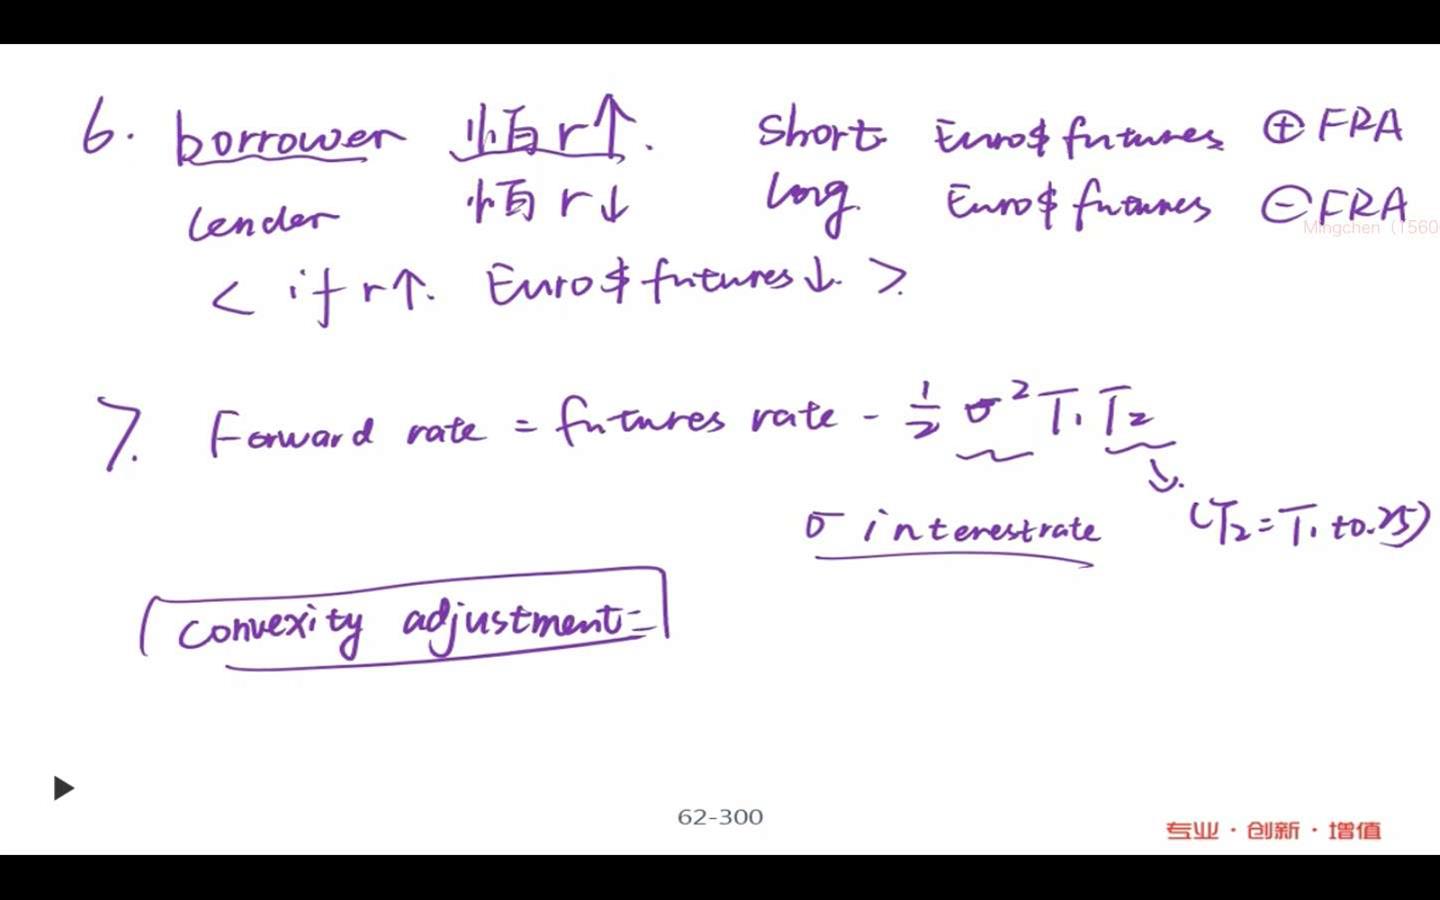 6. borrower 怕 r↑. Short Euro$ futures ⊕ FRA
lender 怕 r↓ long Euro$ futures ⊖ FRA
Mingchen (1560
< if r↑. Euro$ futures↓. >
7. Forward rate = futures rate - ½ σ² T₁ T₂
σ interestrate (T₂ = T₁ + 0.25)
convexity adjustment=
62-300
专业·创新·增值